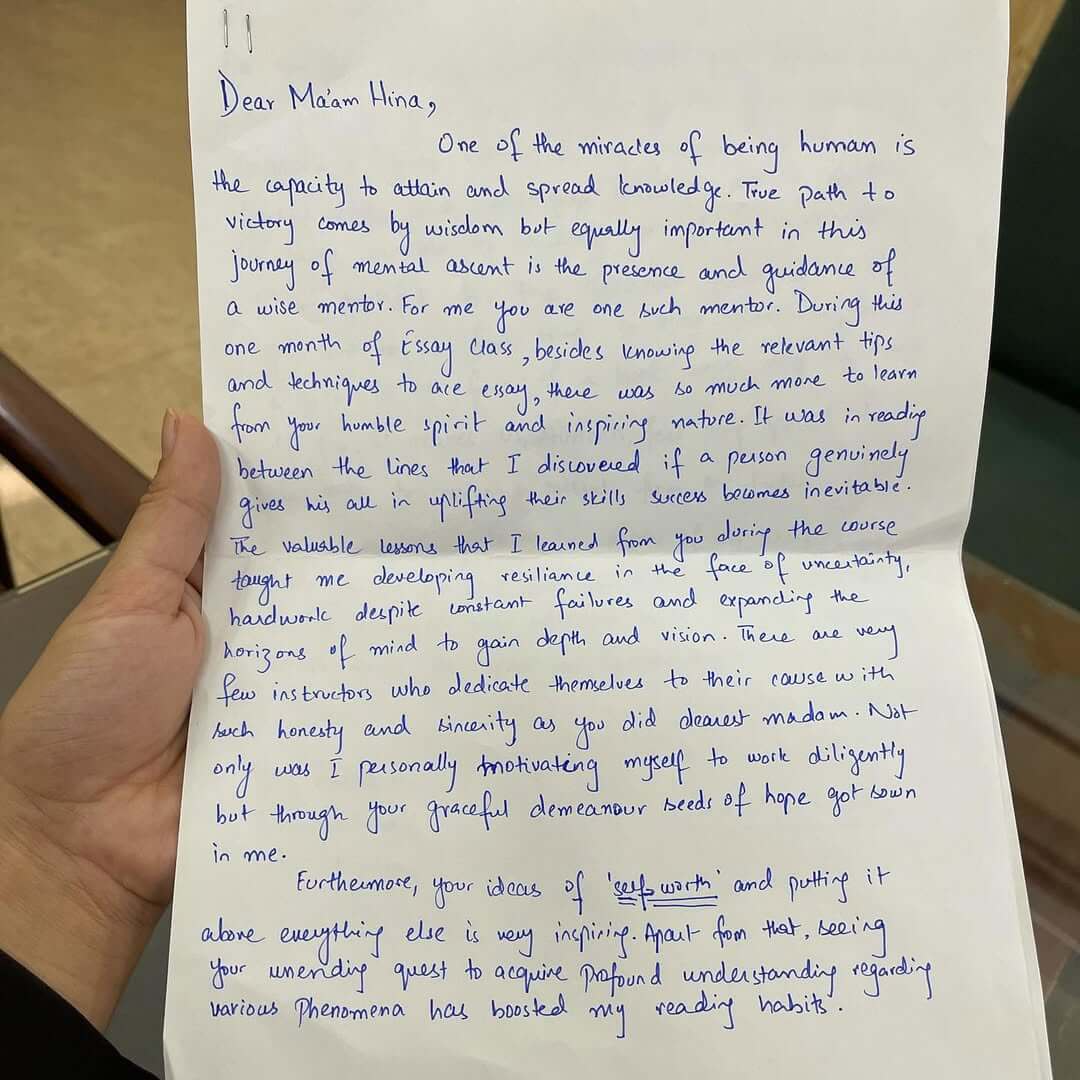 Dear Ma'am Hina,
One of the miracles of being human is
the capacity to attain and spread knowledge. True path to
victory comes by wisdom but equally important in this
journey of mental ascent is the presence and guidance of
a wise mentor. For me you are one such mentor. During this
one month of Essay Class, besides knowing the relevant tips
and techniques to ace essay, there was so much more to learn
from your humble spirit and inspiring nature. It was in reading
between the lines that I discovered if a person genuinely
gives his all in uplifting their skills success becomes inevitable.
The valuable lessons that I learned from you during the course
taught me developing resiliance in the face of uncertainty,
hardwork despite constant failures and expanding the
horizons of mind to gain depth and vision. There are very
few instructors who dedicate themselves to their cause with
such honesty and sincerity as you did dearest madam. Not
only was I personally motivating myself to work diligently
but through your graceful demeanour seeds of hope got sown
in me.
Furthermore, your ideas of 'self worth' and putting it
above everything else is very inspiring. Apart from that, seeing
your unending quest to acquire Profound understanding regarding
various Phenomena has boosted my reading habits.